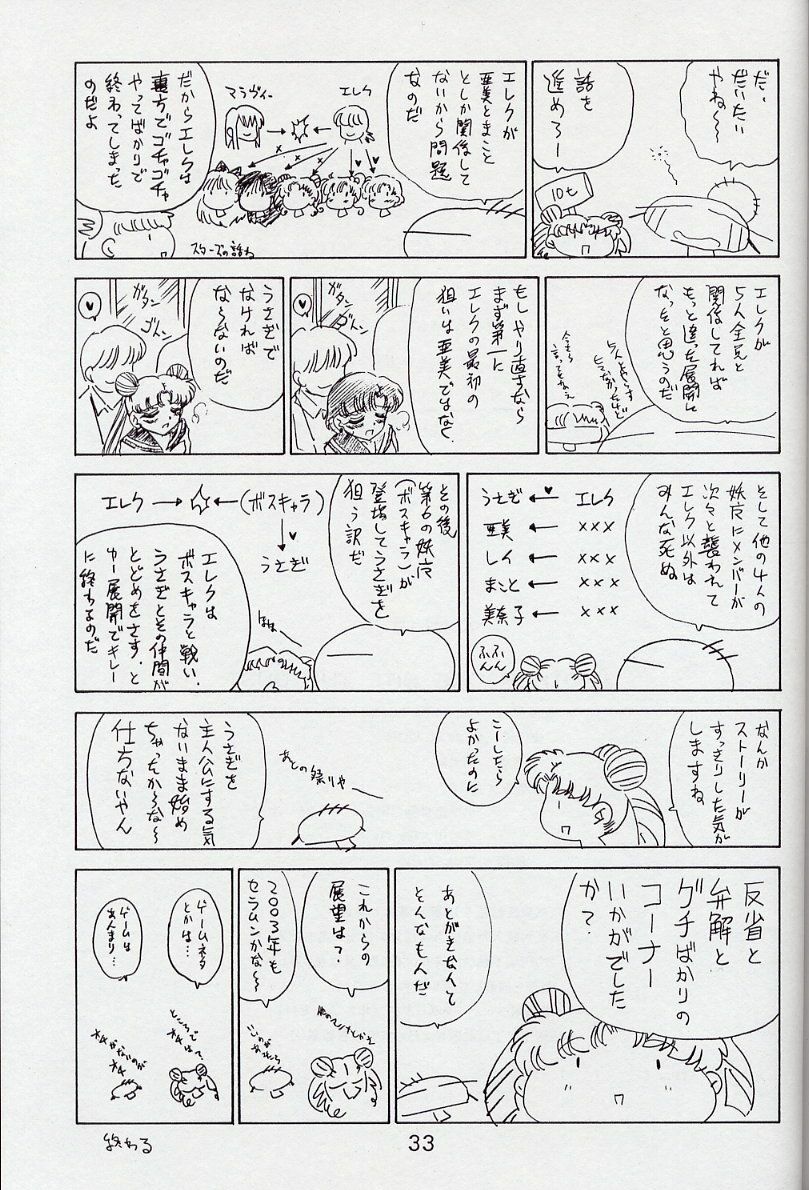 だ、
だいたい
やね〜〜
話を
進めろー
10t
エレクが
亜美とまこと
としか関係して
ないから問題
なのだ
エレク
マラヴィー
だからエレクは
裏方でゴチャゴチャ
やってばかりで
終わってしまった
のだよ
スターズの話ね
エレクが
5人全員と
関係してれば
もっと違った展開に
なったと思うのだ
もしやり直すなら
まず第一に
エレクの最初の
狙いは亜美ではなく、
ガタン
ゴトン
うさぎで
なければ
な〜らないのだ
ガタン
ゴトン
そして他の4人の
妖魔にメンバーが
次々と襲われて
エレク以外は
みんな死ぬ
エレク
うさぎ
×××
亜美
×××
レイ
×××
まこと
×××
美奈子
ふん
ふん
その後
第6の妖魔
(ボスキャラ)が
登場してうさぎを
狙う訳だ
エレク
(ボスキャラ)
うさぎ
エレクは
ボスキャラと戦い、
うさぎとその仲間が
とどめをさす、と
ゆー展開でキレー
に終わるのだ
なんか
ストーリーが
すっきりした気が
しますね
こーしたら
よかったのに
あとの祭りや
うさぎを
主人公にする気
ないまま始め
ちゃったか〜な〜
仕方ないやん
反省と
弁解と
グチばかりの
コーナー
いかがでした
か？
あとがきなんて
そんなもんだ
これからの
展望は？
2003年も
セラムンかな〜〜
ゲームネタ
とかは…
ゲームは
あんまり…
ところで
終わる
33